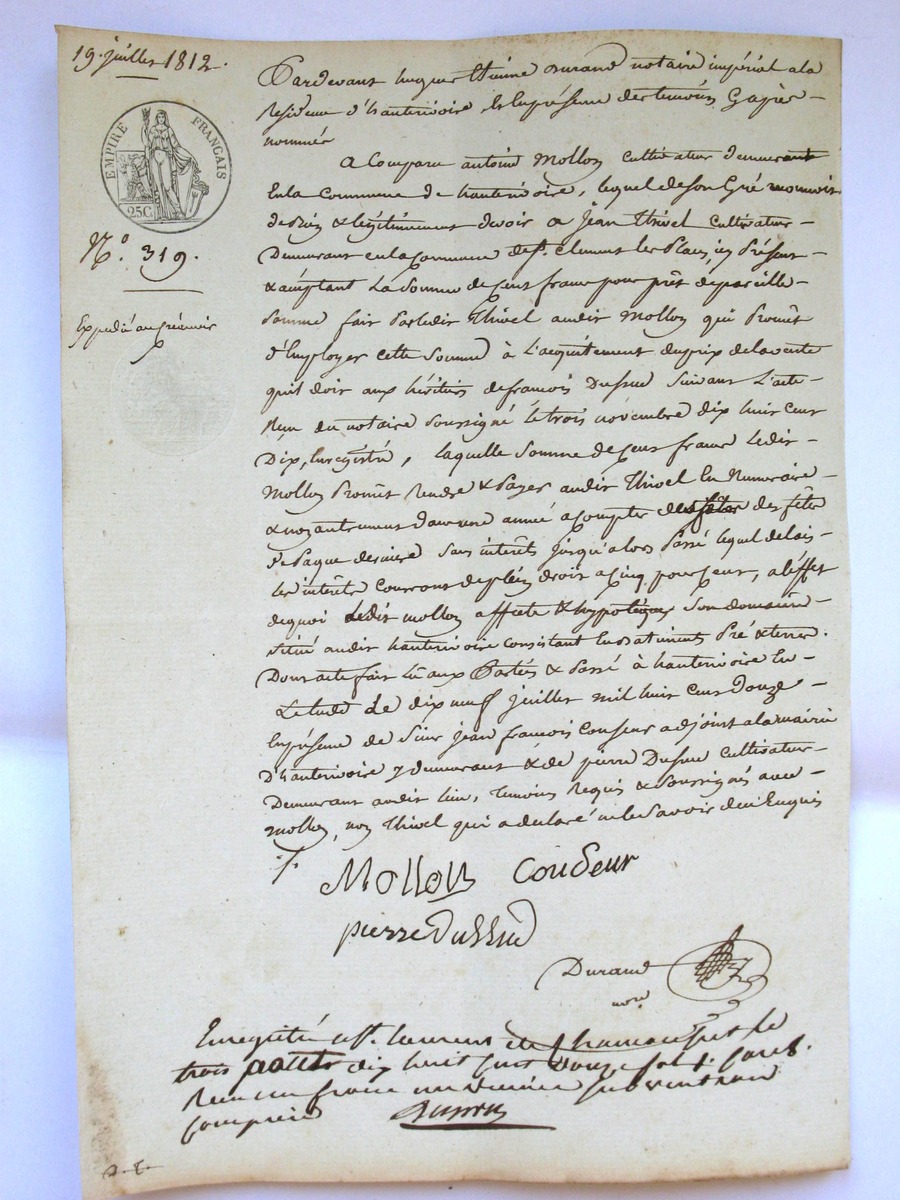 19. juillet 1812.
EMPIRE FRANÇAIS
25C
N.o 319.
Expedié au créancier
Pardevant hugues Etienne Durand notaire impérial a la
Residence d'hauterivoire, & En présence des temoins Cy après
nommés
a Comparu antoine Mollon cultivateur demeurant
En la Commune de hauterivoire, lequel de son Gré reconnoit
de Bien & legitimement devoir a Jean Thivel cultivateur
Demeurant en la Commune de St. clement les Places, icy Présent
& acceptant La Somme de Cent francs pour prêt de pareille
Somme fait Par ledit Thivel audit Mollon qui Promet
d'Employer cette Somme à L'acquittement du prix de la vente
quil doit aux héritiers de francois Dussud Suivant L'acte
Reçu du notaire Soussigné le trois novembre dix huit cent
Dix, Enregistré, laquelle Somme de Cent francs Ledit
Mollon Promet Rendre & Payer audit Thivel En Numeraire
& non autrement dans une année a Compter des fêtes
de Paque derniere Sans interêts jusqu'alors Passé lequel delais
les interêts Courront de plein droit a Cinq pour Cent, a l'effet
de quoi Ledit mollon affecte & hypotèque Son domaine
Situé audit hauterivoire Consistant En Batiments Pré & terres.
Dont acte fait Lû aux Parties & Passé à hauterivoire En
L'etude Le dix neuf juillet mil huit Cent Douze
En présence de Sieur jean francois Condeur adjoint a la mairie
D'hauterivoire y demeurant & de pierre Dussud cultivateur
Demeurant audit lieu, temoins Requis & Soussignés avec
mollon, non Thivel qui a declaré ne le Savoir de ce Enquis
Mollon Condeur
pierre Dussud
Durand
nore
Enregistré a St. Laurent de Chamousset le
trois aoust dix huit Cent Douze fol
Reçu un franc
Compris